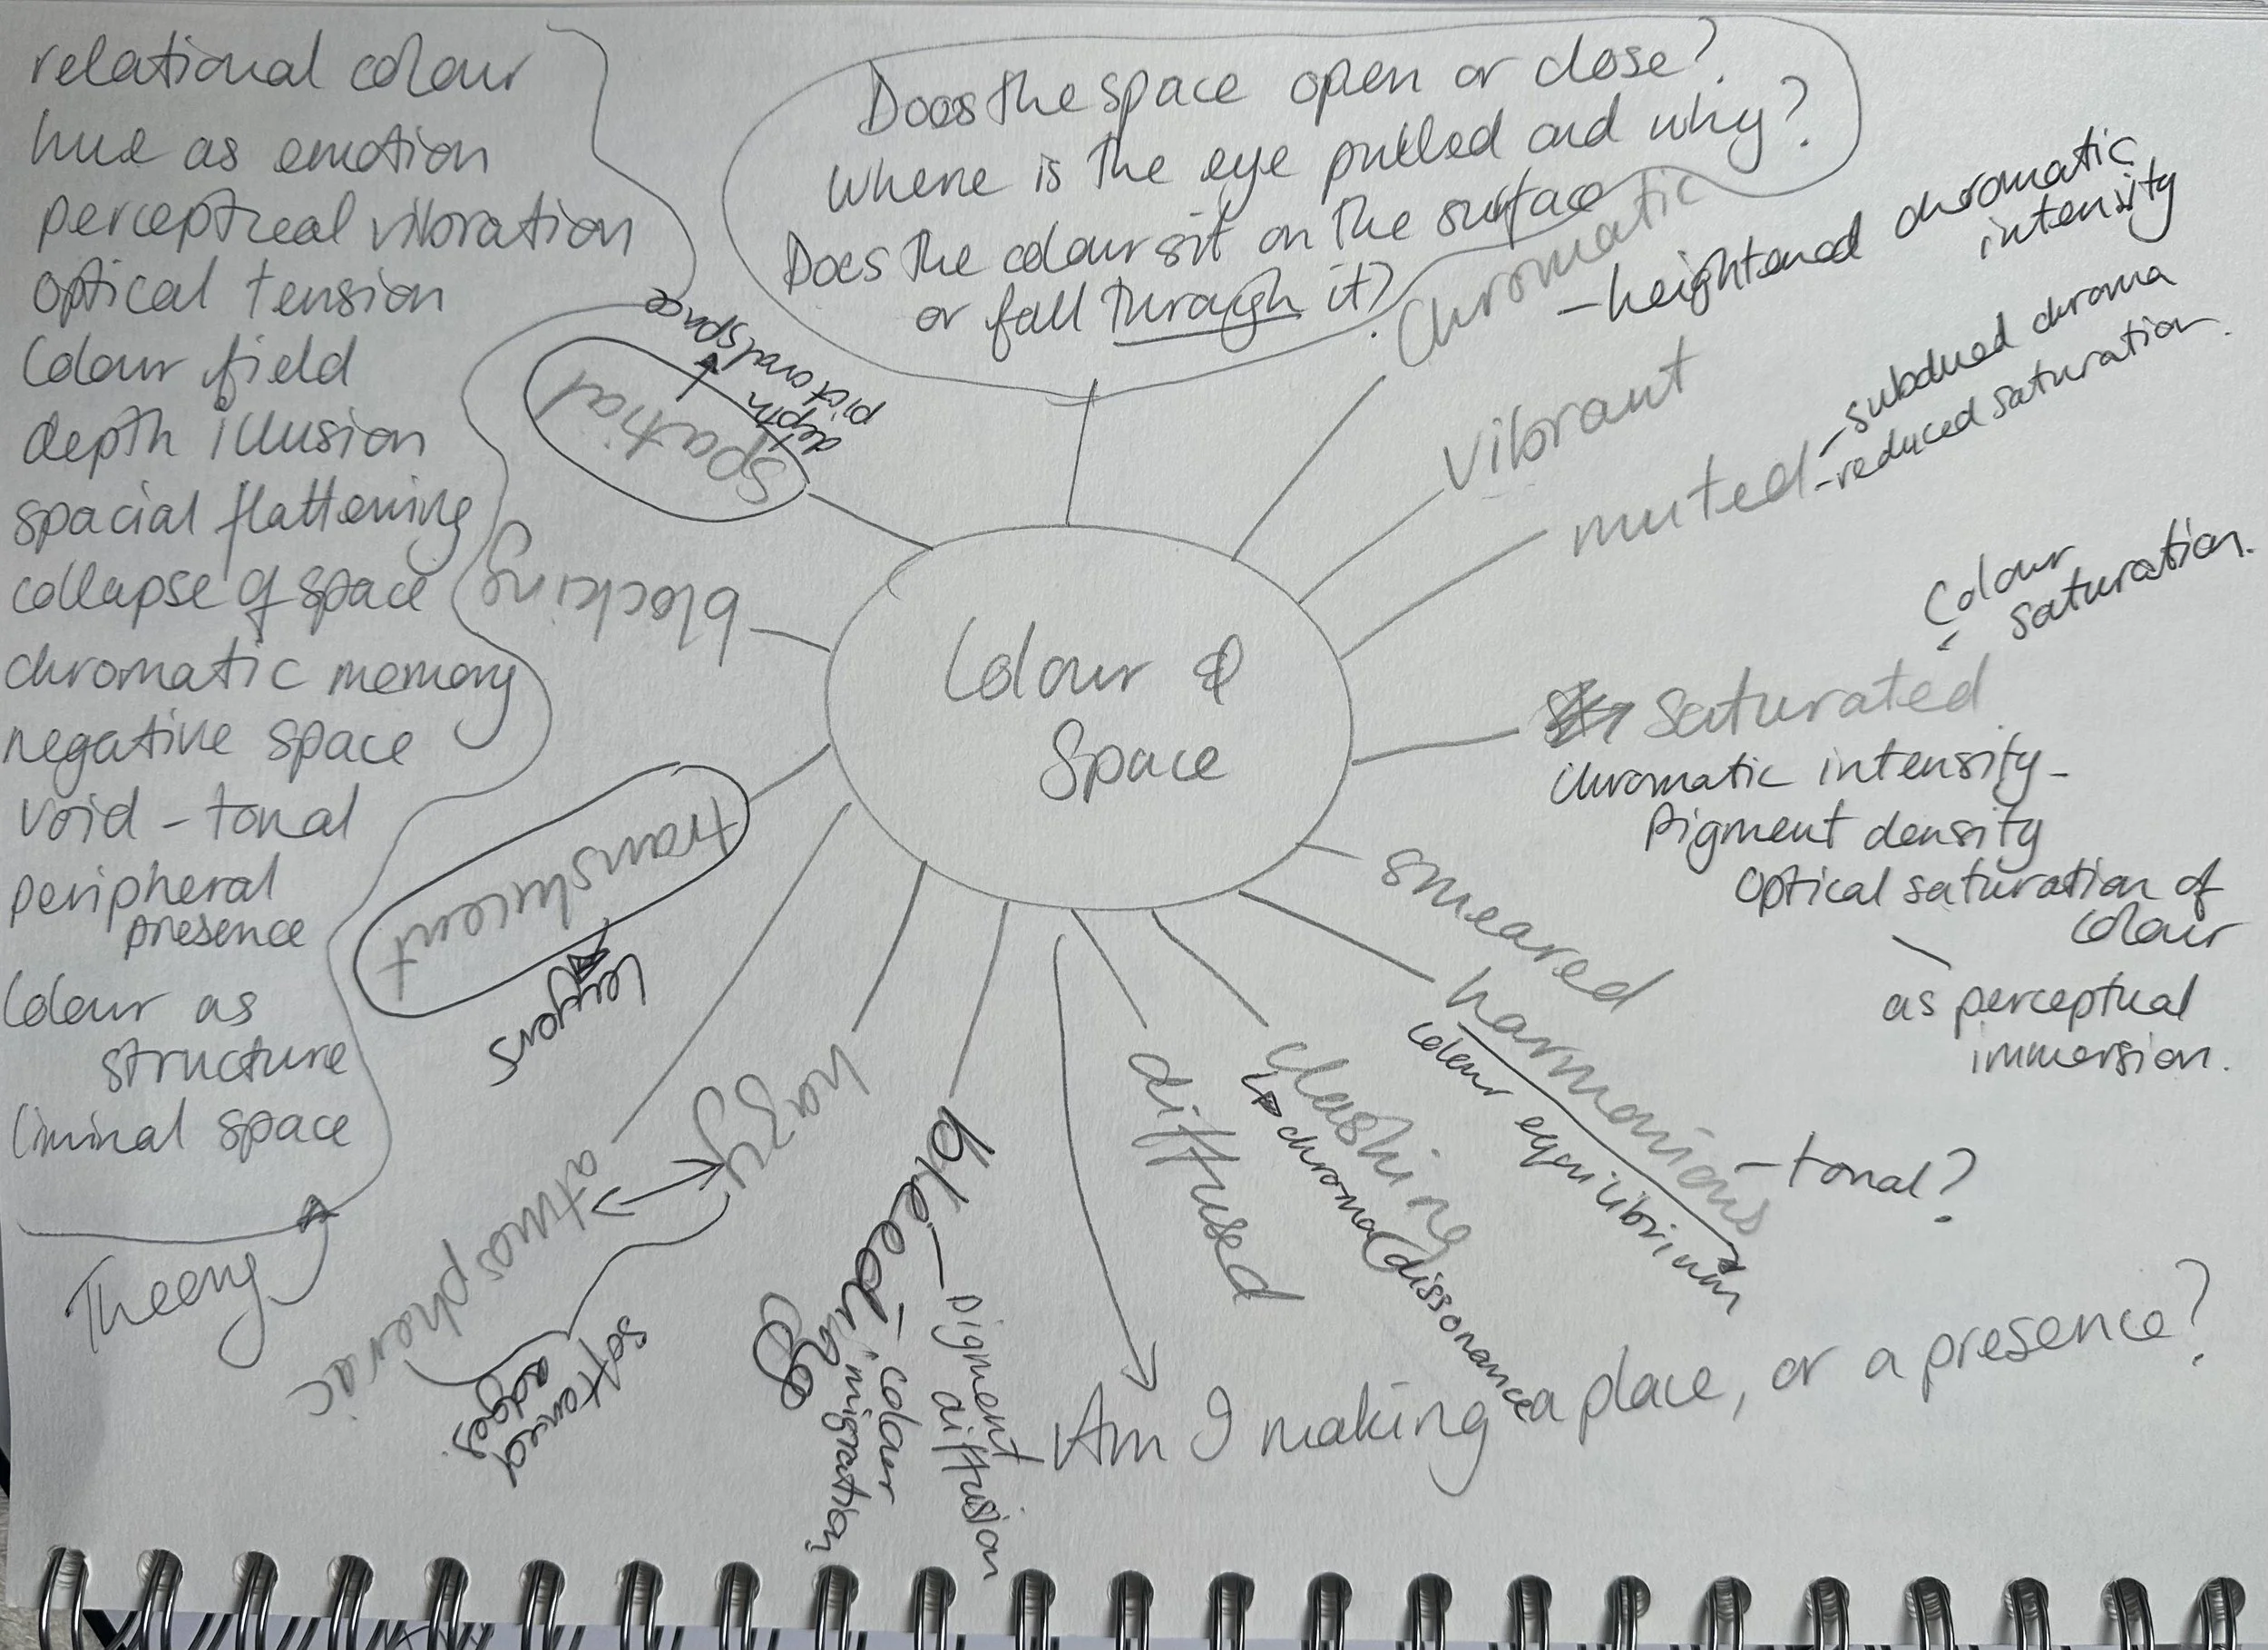 relational colour
hue as emotion
perceptual vibration
optical tension
Colour field
depth illusion
spacial flattening
collapse of space
chromatic memory
negative space
void - tonal
peripheral
presence
Colour as
structure
liminal space
Theory
Does the space open or close?
Where is the eye pulled and why?
Does the colour sit on the surface
or fall through it?
Colour &
Space
Chromatic
- heightened chromatic
intensity
Vibrant
muted
- subdued chroma
- reduced saturation.
Colour
saturation.
saturated
Chromatic intensity -
Pigment density
Optical saturation of
colour
as perceptual
immersion.
smeared
harmonious
- tonal?
colour equilibrium
clashing
chroma(dissonance
diffused
Am I making a place, or a presence?
bleeding
- pigment
diffusion
- colour
migration
hazy
atmospheric
softened
edges
translucent
layers
blocking
spatial
depth
pictoral space